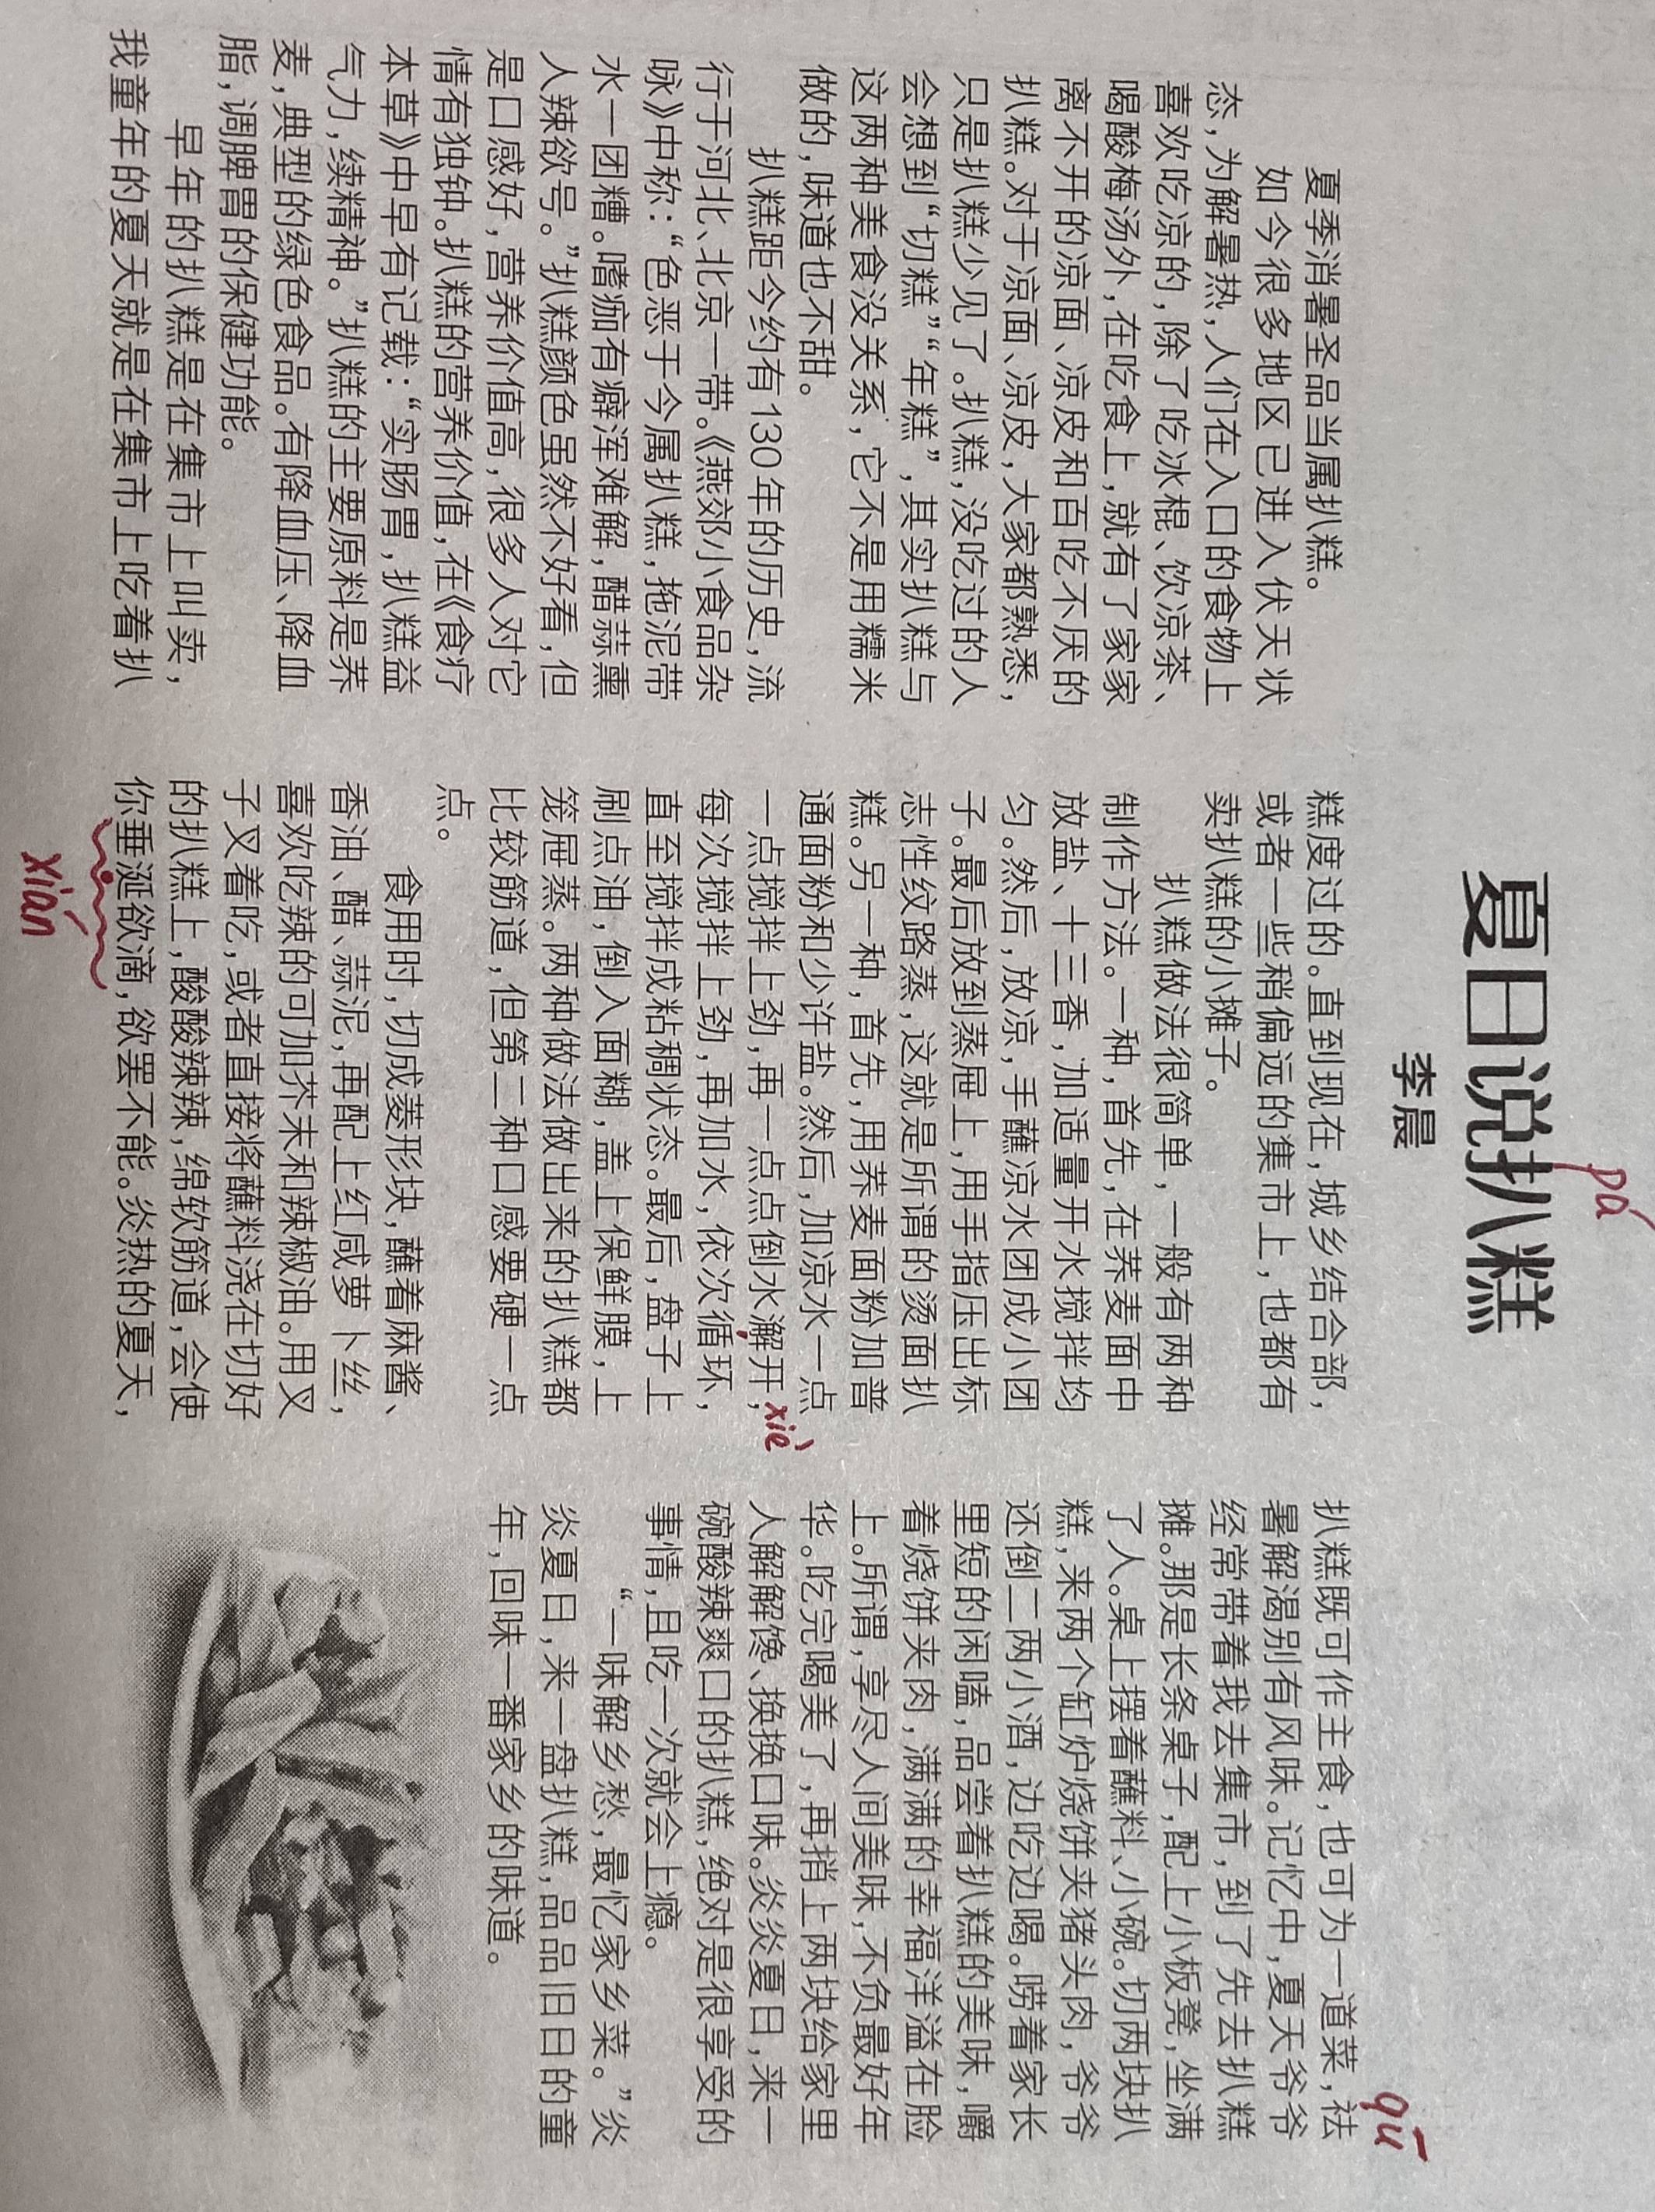 夏日说扒糕
pá
李晨
夏季消暑圣品当属扒糕。
如今很多地区已进入伏天状
态，为解暑热，人们在入口的食物上
喜欢吃凉的，除了吃冰棍、饮凉茶、
喝酸梅汤外，在吃食上，就有了家家
离不开的凉面、凉皮和百吃不厌的
扒糕。对于凉面、凉皮，大家都熟悉，
只是扒糕少见了。扒糕，没吃过的人
会想到“切糕”“年糕”，其实扒糕与
这两种美食没关系，它不是用糯米
做的，味道也不甜。
扒糕距今约有130年的历史，流
行于河北、北京一带。《燕郊小食品杂
咏》中称：“色恶于今属扒糕，拖泥带
水一团糟。嗜痂有癖浑难解，醋蒜熏
人辣欲号。”扒糕颜色虽然不好看，但
是口感好，营养价值高，很多人对它
情有独钟。扒糕的营养价值，在《食疗
本草》中早有记载：“实肠胃，扒糕益
气力，续精神。”扒糕的主要原料是荞
麦，典型的绿色食品。有降血压、降血
脂，调脾胃的保健功能。
早年的扒糕是在集市上叫卖，
我童年的夏天就是在集市上吃着扒
糕度过的。直到现在，城乡结合部，
或者一些稍偏远的集市上，也都有
卖扒糕的小摊子。
扒糕做法很简单，一般有两种
制作方法。一种，首先，在荞麦面中
放盐、十三香，加适量开水搅拌均
匀。然后，放凉，手蘸凉水团成小团
子。最后放到蒸屉上，用手指压出标
志性纹路蒸，这就是所谓的烫面扒
糕。另一种，首先，用荞麦面粉加普
通面粉和少许盐。然后，加凉水一点
一点搅拌上劲，再一点点倒水澥开，
xiè
每次搅拌上劲，再加水，依次循环，
直至搅拌成粘稠状态。最后，盘子上
刷点油，倒入面糊，盖上保鲜膜，上
笼屉蒸。两种做法做出来的扒糕都
比较筋道，但第二种口感要硬一点
点。
食用时，切成菱形块，蘸着麻酱、
香油、醋、蒜泥，再配上红咸萝卜丝，
喜欢吃辣的可加芥末和辣椒油。用叉
子叉着吃，或者直接将蘸料浇在切好
的扒糕上，酸酸辣辣，绵软筋道，会使
你垂涎欲滴，欲罢不能。炎热的夏天，
xián
扒糕既可作主食，也可为一道菜，祛
qū
暑解渴别有风味。记忆中，夏天爷爷
经常带着我去集市，到了先去扒糕
摊。那是长条桌子，配上小板凳，坐满
了人。桌上摆着蘸料、小碗。切两块扒
糕，来两个缸炉烧饼夹猪头肉，爷爷
还倒二两小酒，边吃边喝。唠着家长
里短的闲嗑，品尝着扒糕的美味，嚼
着烧饼夹肉，满满的幸福洋溢在脸
上。所谓，享尽人间美味，不负最好年
华。吃完喝美了，再捎上两块给家里
人解解馋、换换口味。炎炎夏日，来一
碗酸辣爽口的扒糕，绝对是很享受的
事情，且吃一次就会上瘾。
“一味解乡愁，最忆家乡菜。”炎
炎夏日，来一盘扒糕，品品旧日的童
年，回味一番家乡的味道。